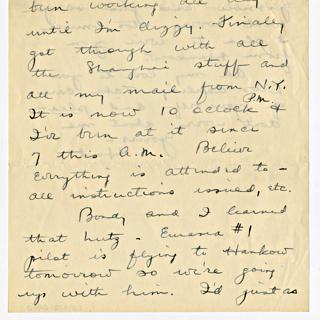 been working all day
until I'm dizzy. Finally
got through with all
the Shanghai stuff and
all my mail from N.Y.
It is now 10 oclock P.M. &
I've been at it since
7 this A.M. Believe
Everything is attended to -
all instructions issued, etc.
Bondy and I learned
that Lutz - Eurasia #1
pilot is flying to Hankow
tomorrow so we're going
up with him. I'd just as